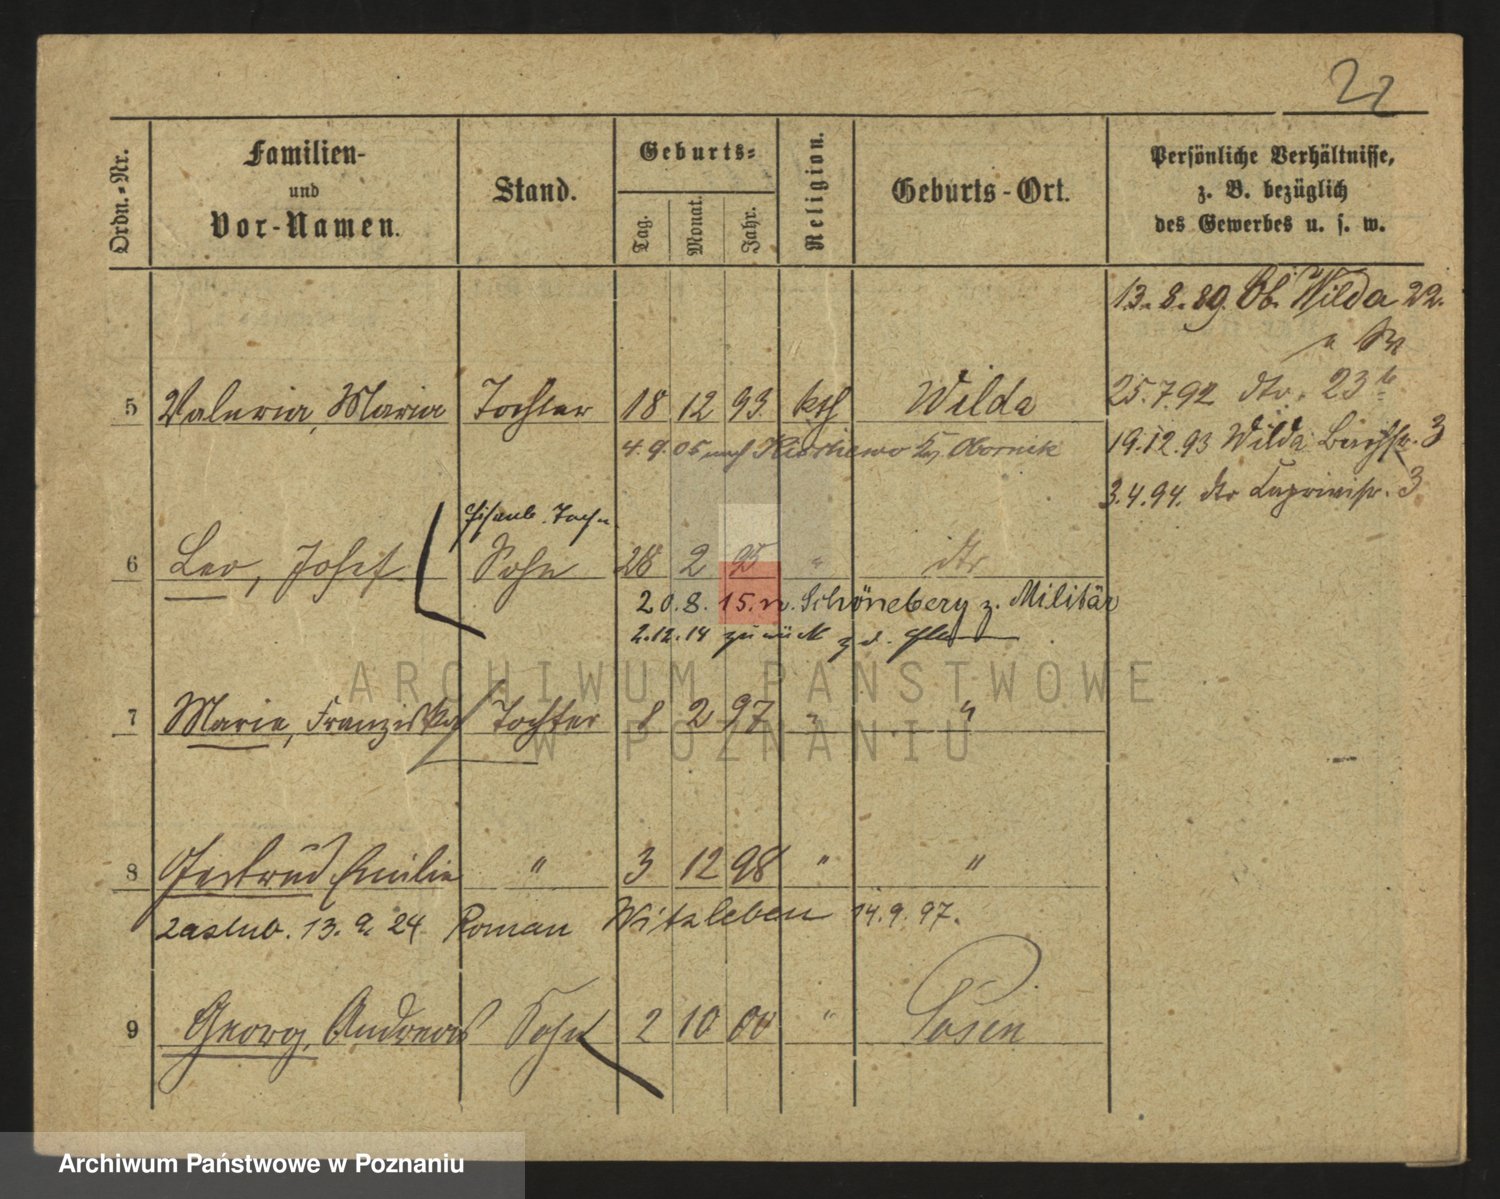 22
Ordn.-Nr.
Familien-
und
Vor-Namen.
Stand.
Geburts-
Tag.
Monat.
Jahr.
Religion.
Geburts-Ort.
Persönliche Verhältnisse,
z. B. bezüglich
des Gewerbes u. s. w.
13.8.89. Ob. Wilda 22.
5 Valeria, Maria Tochter 18 12 93 kth Wilda
25.7.92 dto. 23
4.9.05 nach Obornik
19.12.93 Wilda 3
3.4.94. dto 3
6 Leo, Josef Sohn 28 2 95 " dto
20.8.15. n. Schöneberg z. Militär
2.12.14 zurück
7 Marie, Franziska Tochter 8 2 97 " "
8 Gertrud Emilie " 3 12 98 " "
zaslub. 13.9.24 Roman Witzleben 14.9.97.
9 Georg, Andreas Sohn 2 10 00 " Posen
ARCHIWUM PAŃSTWOWE
W POZNANIU
Archiwum Państwowe w Poznaniu